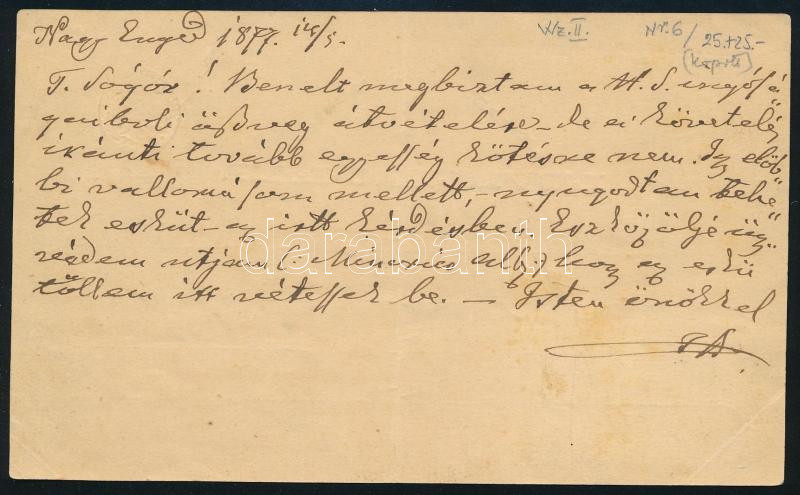 Nagy Enyed 1877. 14/5.
Wz.II.
Nr.6/
25.+25.-
T. Sógór! Benelt megbiztam a H. S. ingósá
gaiboli összveg átvételére - de a követelés
iránti tovább egyesség kötésre nem. Igy előb"
bi vallomásom mellett, - nyugodtan tehe"
tek esküt - az irtt kérdésben. Eszközölje üg"
védem utján hogy az eskü
tőllem itt vétessék be. - Isten önökkel
darabanth